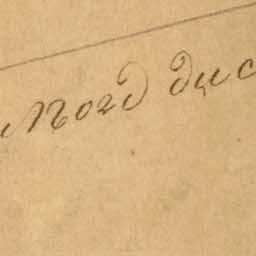 Nord duc